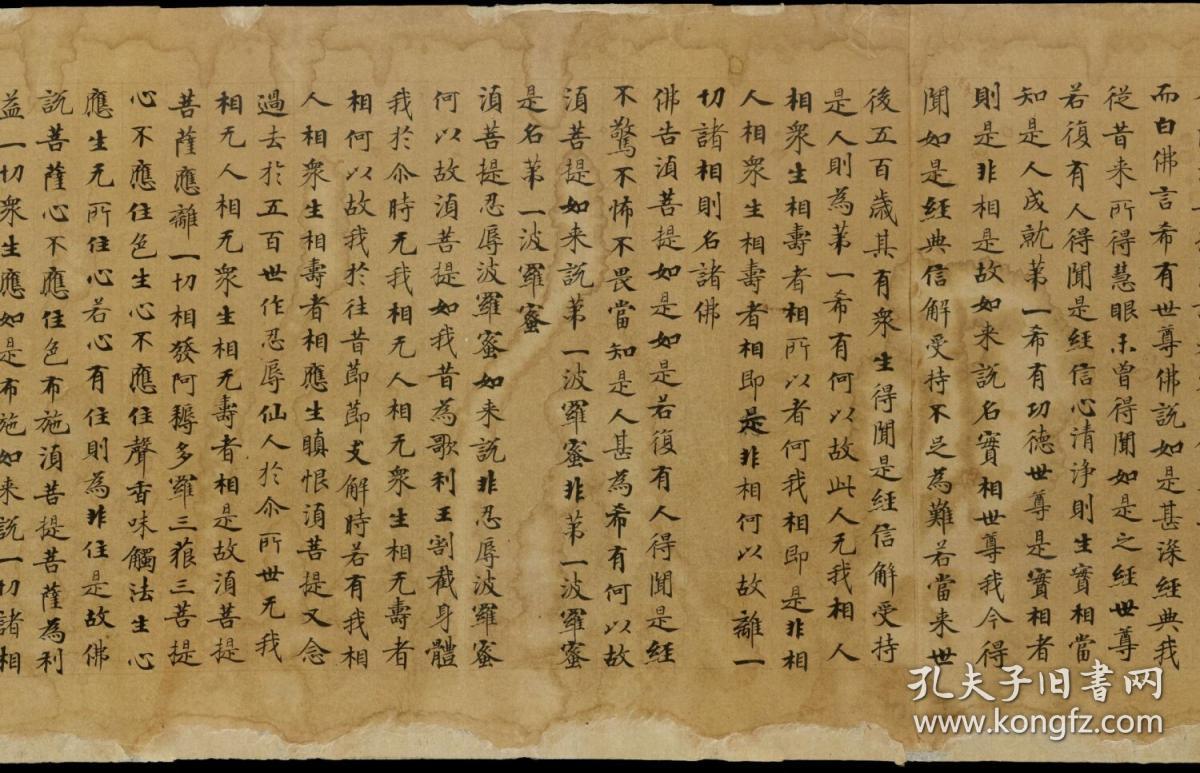 而白佛言希有世尊佛說如是甚深經典我
從昔来所得慧眼未曾得聞如是之經世尊
若復有人得聞是經信心清淨則生實相當
知是人成就苐一希有功德世尊是實相者
則是非相是故如来說名實相世尊我今得
聞如是經典信解受持不足為難若當来世
後五百歲其有衆生得聞是經信解受持
是人則為苐一希有何以故此人无我相人
相衆生相壽者相所以者何我相即是非相
人相衆生相壽者相即是非相何以故離一
切諸相則名諸佛
佛告湏菩提如是如是若復有人得聞是経
不驚不怖不畏當知是人甚為希有何以故
湏菩提如来說苐一波羅蜜非苐一波羅蜜
是名苐一波羅蜜
湏菩提忍辱波羅蜜如来說非忍辱波羅蜜
何以故湏菩提如我昔為歌利王割截身體
我於尒時无我相无人相无衆生相无壽者
相何以故我於往昔節節支解時若有我相
人相衆生相壽者相應生瞋恨湏菩提又念
過去於五百世作忍辱仙人於尒所世无我
相无人相无衆生相无壽者相是故湏菩提
菩薩應離一切相發阿耨多羅三藐三菩提
心不應住色生心不應住聲香味觸法生心
應生无所住心若心有住則為非住是故佛
說菩薩心不應住色布施湏菩提菩薩為利
益一切衆生應如是布施如来說一切諸相
孔夫子旧書网
www.kongfz.com